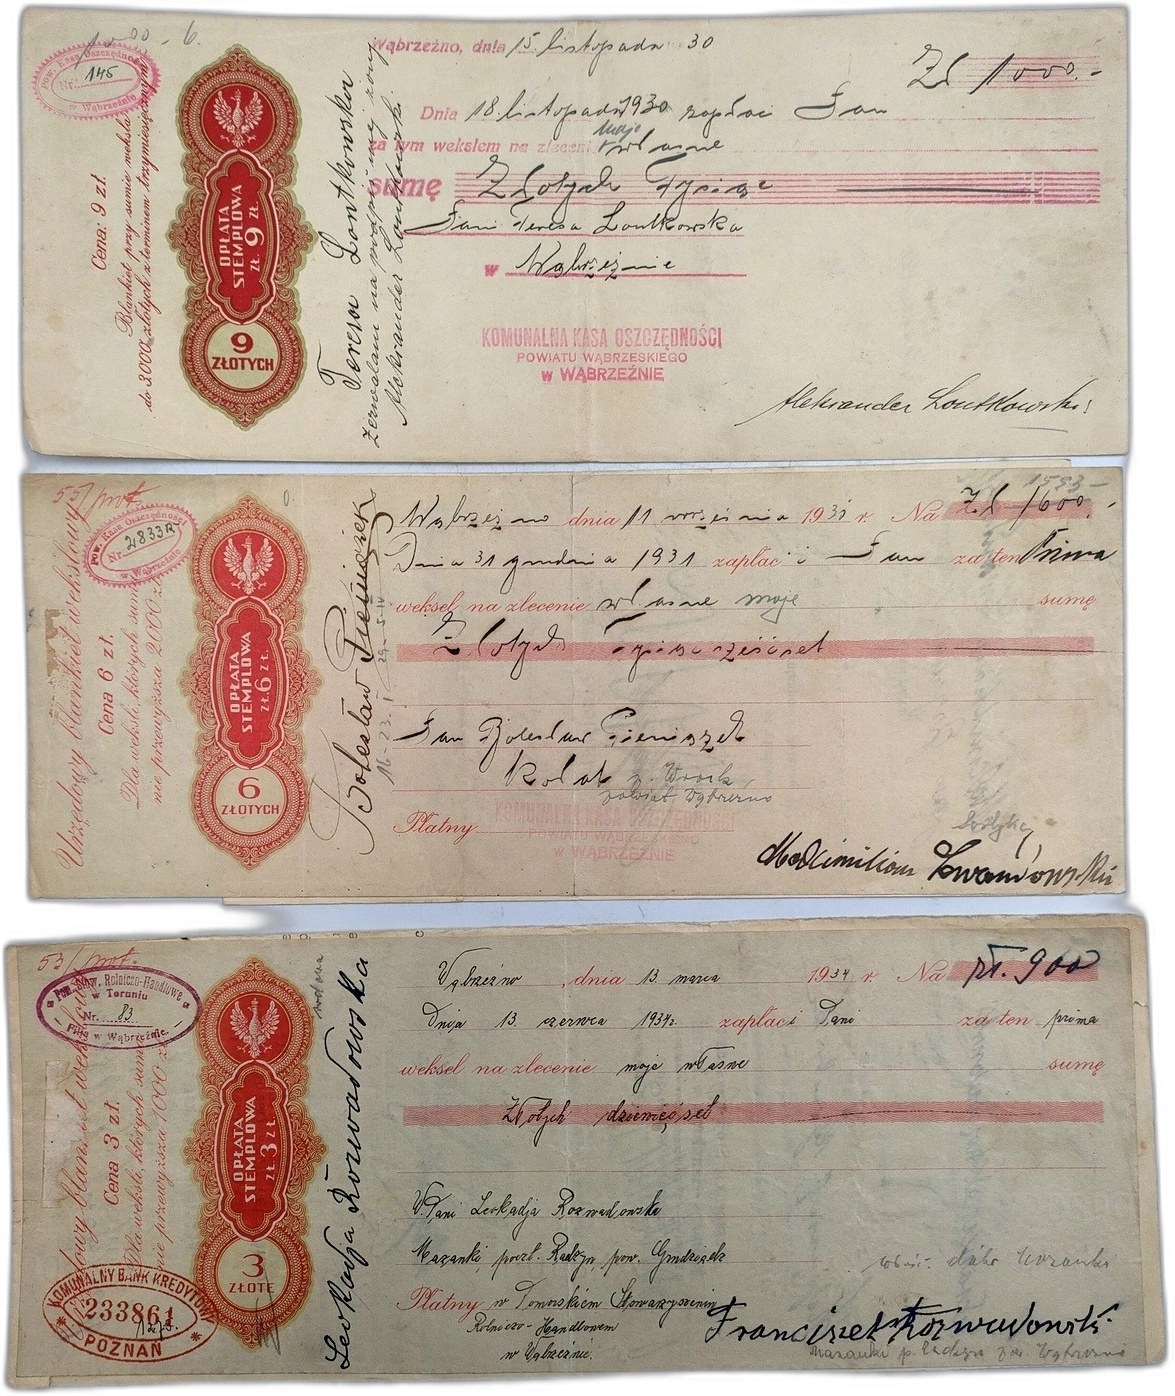 Pow. Kasa Oszczędności
Nr. 145
w Wąbrzeźnie
Cena: 9 zł.
Blankiet przy sumie weksla
do 3000 złotych z terminem trzymiesięcznym
OPŁATA
STEMPLOWA
ZŁ 9 ZŁ.
9
ZŁOTYCH
Teresa Loutkowska
zezwalam na mojej żony
Aleksander Loutkowski
Wąbrzeźno, dnia 15 listopada 30
Zł 1000.-
Dnia 18 listopada 1930 zapłaci Pan
za tym wekslem na zleceni moje własne
sumę Złotych Tysiąc
Pani Teresa Loutkowska
w Wąbrzeźnie
KOMUNALNA KASA OSZCZĘDNOŚCI
POWIATU WĄBRZESKIEGO
w WĄBRZEŹNIE
Aleksander Loutkowski
55/prot.
Pow. Kasa Oszczędności
Nr. 2833R
w Wąbrzeźnie
Urzędowy blankiet wekslowy
Cena 6 zł.
Dla weksli, których suma
nie przewyższa 2000 zł.
OPŁATA
STEMPLOWA
ZŁ. 6 ZŁ.
6
ZŁOTYCH
Bolesław Pieniążek
1593-
Wąbrzeźno dnia 11 września 1931 r. Na Zł 1600.-
Dnia 31 grudnia 1931 zapłaci Pan za ten Prima
weksel na zlecenie własne moje sumę
Złotych Tysiąc sześćset
Pan Bolesław Pieniążek
p. Wrock
powiat Wąbrzeźno
Płatny
KOMUNALNA KASA OSZCZĘDNOŚCI
POWIATU WĄBRZESKIEGO
w WĄBRZEŹNIE
53/prot.
Pom. Stow. Rolniczo-Handlowe
w Toruniu
Nr. 83
Filja w Wąbrzeźnie.
Urzędowy blankiet wekslowy
Cena 3 zł.
Dla weksli, których suma
nie przewyższa 1000 zł.
OPŁATA
STEMPLOWA
ZŁ 3 ZŁ.
3
ZŁOTE
KOMUNALNY BANK KREDYTOWY
233861
POZNAŃ
Leokadja Rozwadowska
wdowa
Wąbrzeźno, dnia 13 marca 1934 r. Na zł. 900
Dnia 13 czerwca 1934r. zapłaci Pani za ten prima
weksel na zlecenie moje własne sumę
Złotych dziewięćset
W.Pani Leokadja Rozwadowska
Mazanki, poczt. Radzyn, pow. Grudziądz
Płatny w Pomorskiem Stowarzyszeniu
Rolniczo-Handlowem
w Wąbrzeźnie.
Franciszek Rozwadowski
Mazanki p. Radzyn pow. Wąbrzeźno